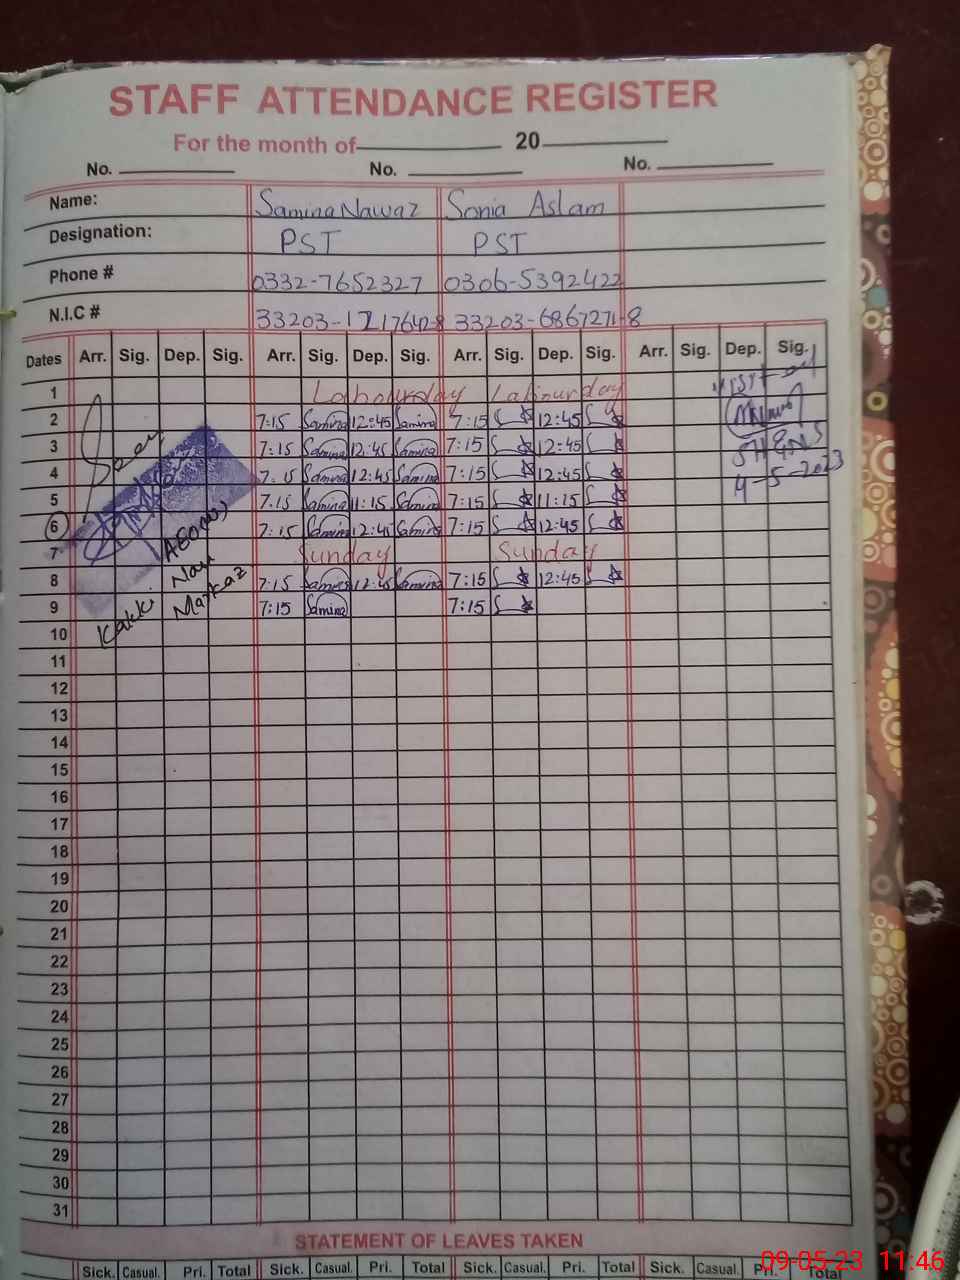 STAFF ATTENDANCE REGISTER
For the month of 20
No. No. No.
Name: Samina Nawaz Sonia Aslam
Designation: PST PST
Phone # 0332-7652327 0306-5392422
N.I.C # 33203-6867271-8
Dates Arr. Sig. Dep. Sig. Arr. Sig. Dep. Sig. Arr. Sig. Dep. Sig. Arr. Sig. Dep. Sig.
1 Labourday Labourday
2 7:15 Samina 12:45 Samina 7:15 12:45
3 7:15 Samina 12:45 Samina 7:15 12:45
4 7:15 Samina 12:45 Samina 7:15 12:45
4-5-2023
5 7:15 Samina 11:15 Samina 7:15 11:15
6 7:15 Samina 12:45 Samina 7:15 12:45
7 Sunday Sunday
8 7:15 Samina 12:45 Samina 7:15 12:45
9 7:15 Samina 7:15
Markaz
10
11
12
13
14
15
16
17
18
19
20
21
22
23
24
25
26
27
28
29
30
31
STATEMENT OF LEAVES TAKEN
Sick. Casual. Pri. Total Sick. Casual. Pri. Total Sick. Casual. Pri. Total Sick. Casual. Pri. Total
09-05-23 11:46